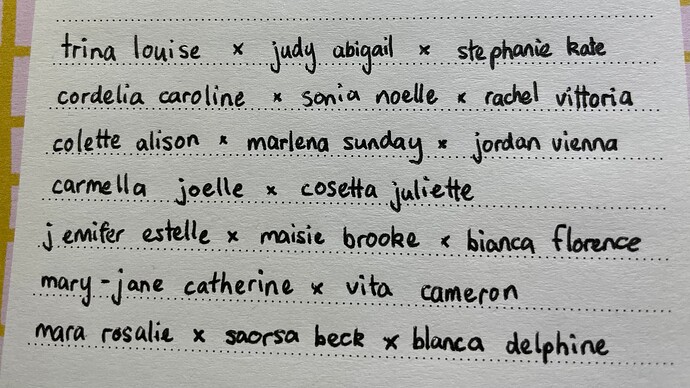 trina louise x judy abigail x stephanie kate
cordelia caroline x sonia noelle x rachel vittoria
colette alison x marlena sunday x jordan vienna
carmella joelle x cosetta juliette
jemifer estelle x maisie brooke x bianca florence
mary-jane catherine x vita cameron
mara rosalie x saorsa beck x blanca delphine